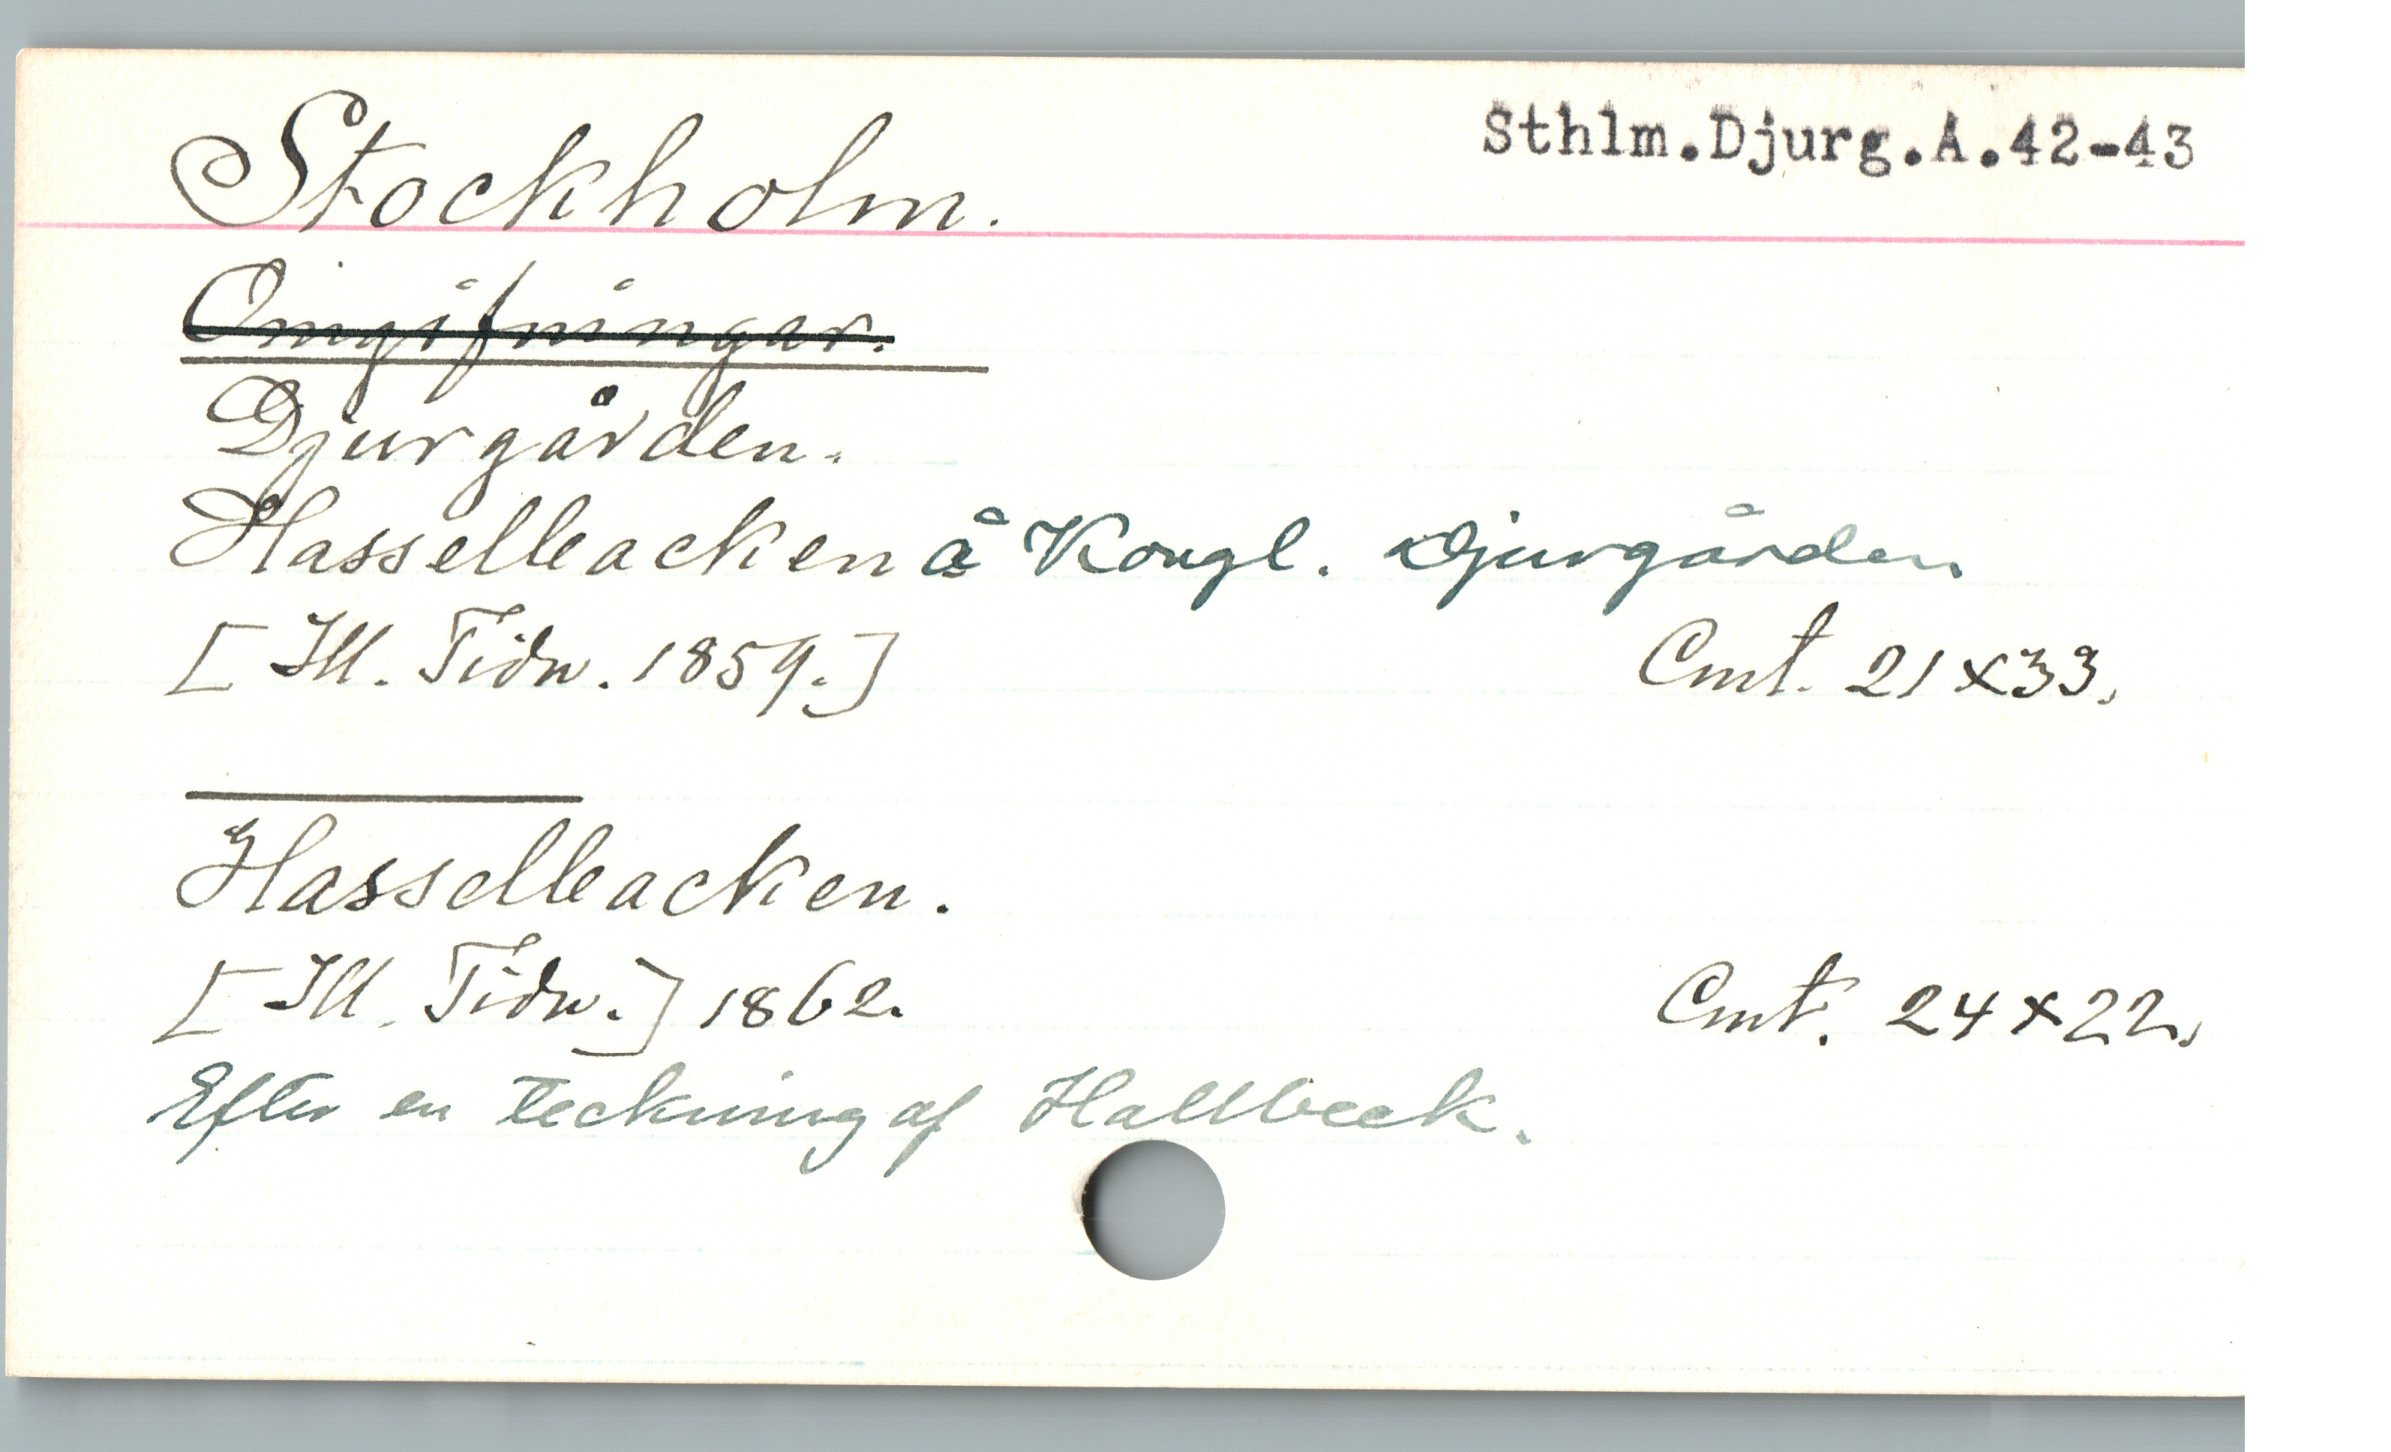 Stockholm.
Sthlm.Djurg.A.42-43
Omgifningar.
Djurgården.
Hasselbacken å Kongl. Djurgården
[Ill. Tidn. 1859.] Cmt. 21 x 33.
Hasselbacken.
[Ill. Tidn.] 1862. Cmt. 24 x 22.
Efter en teckning af Hallbeck.